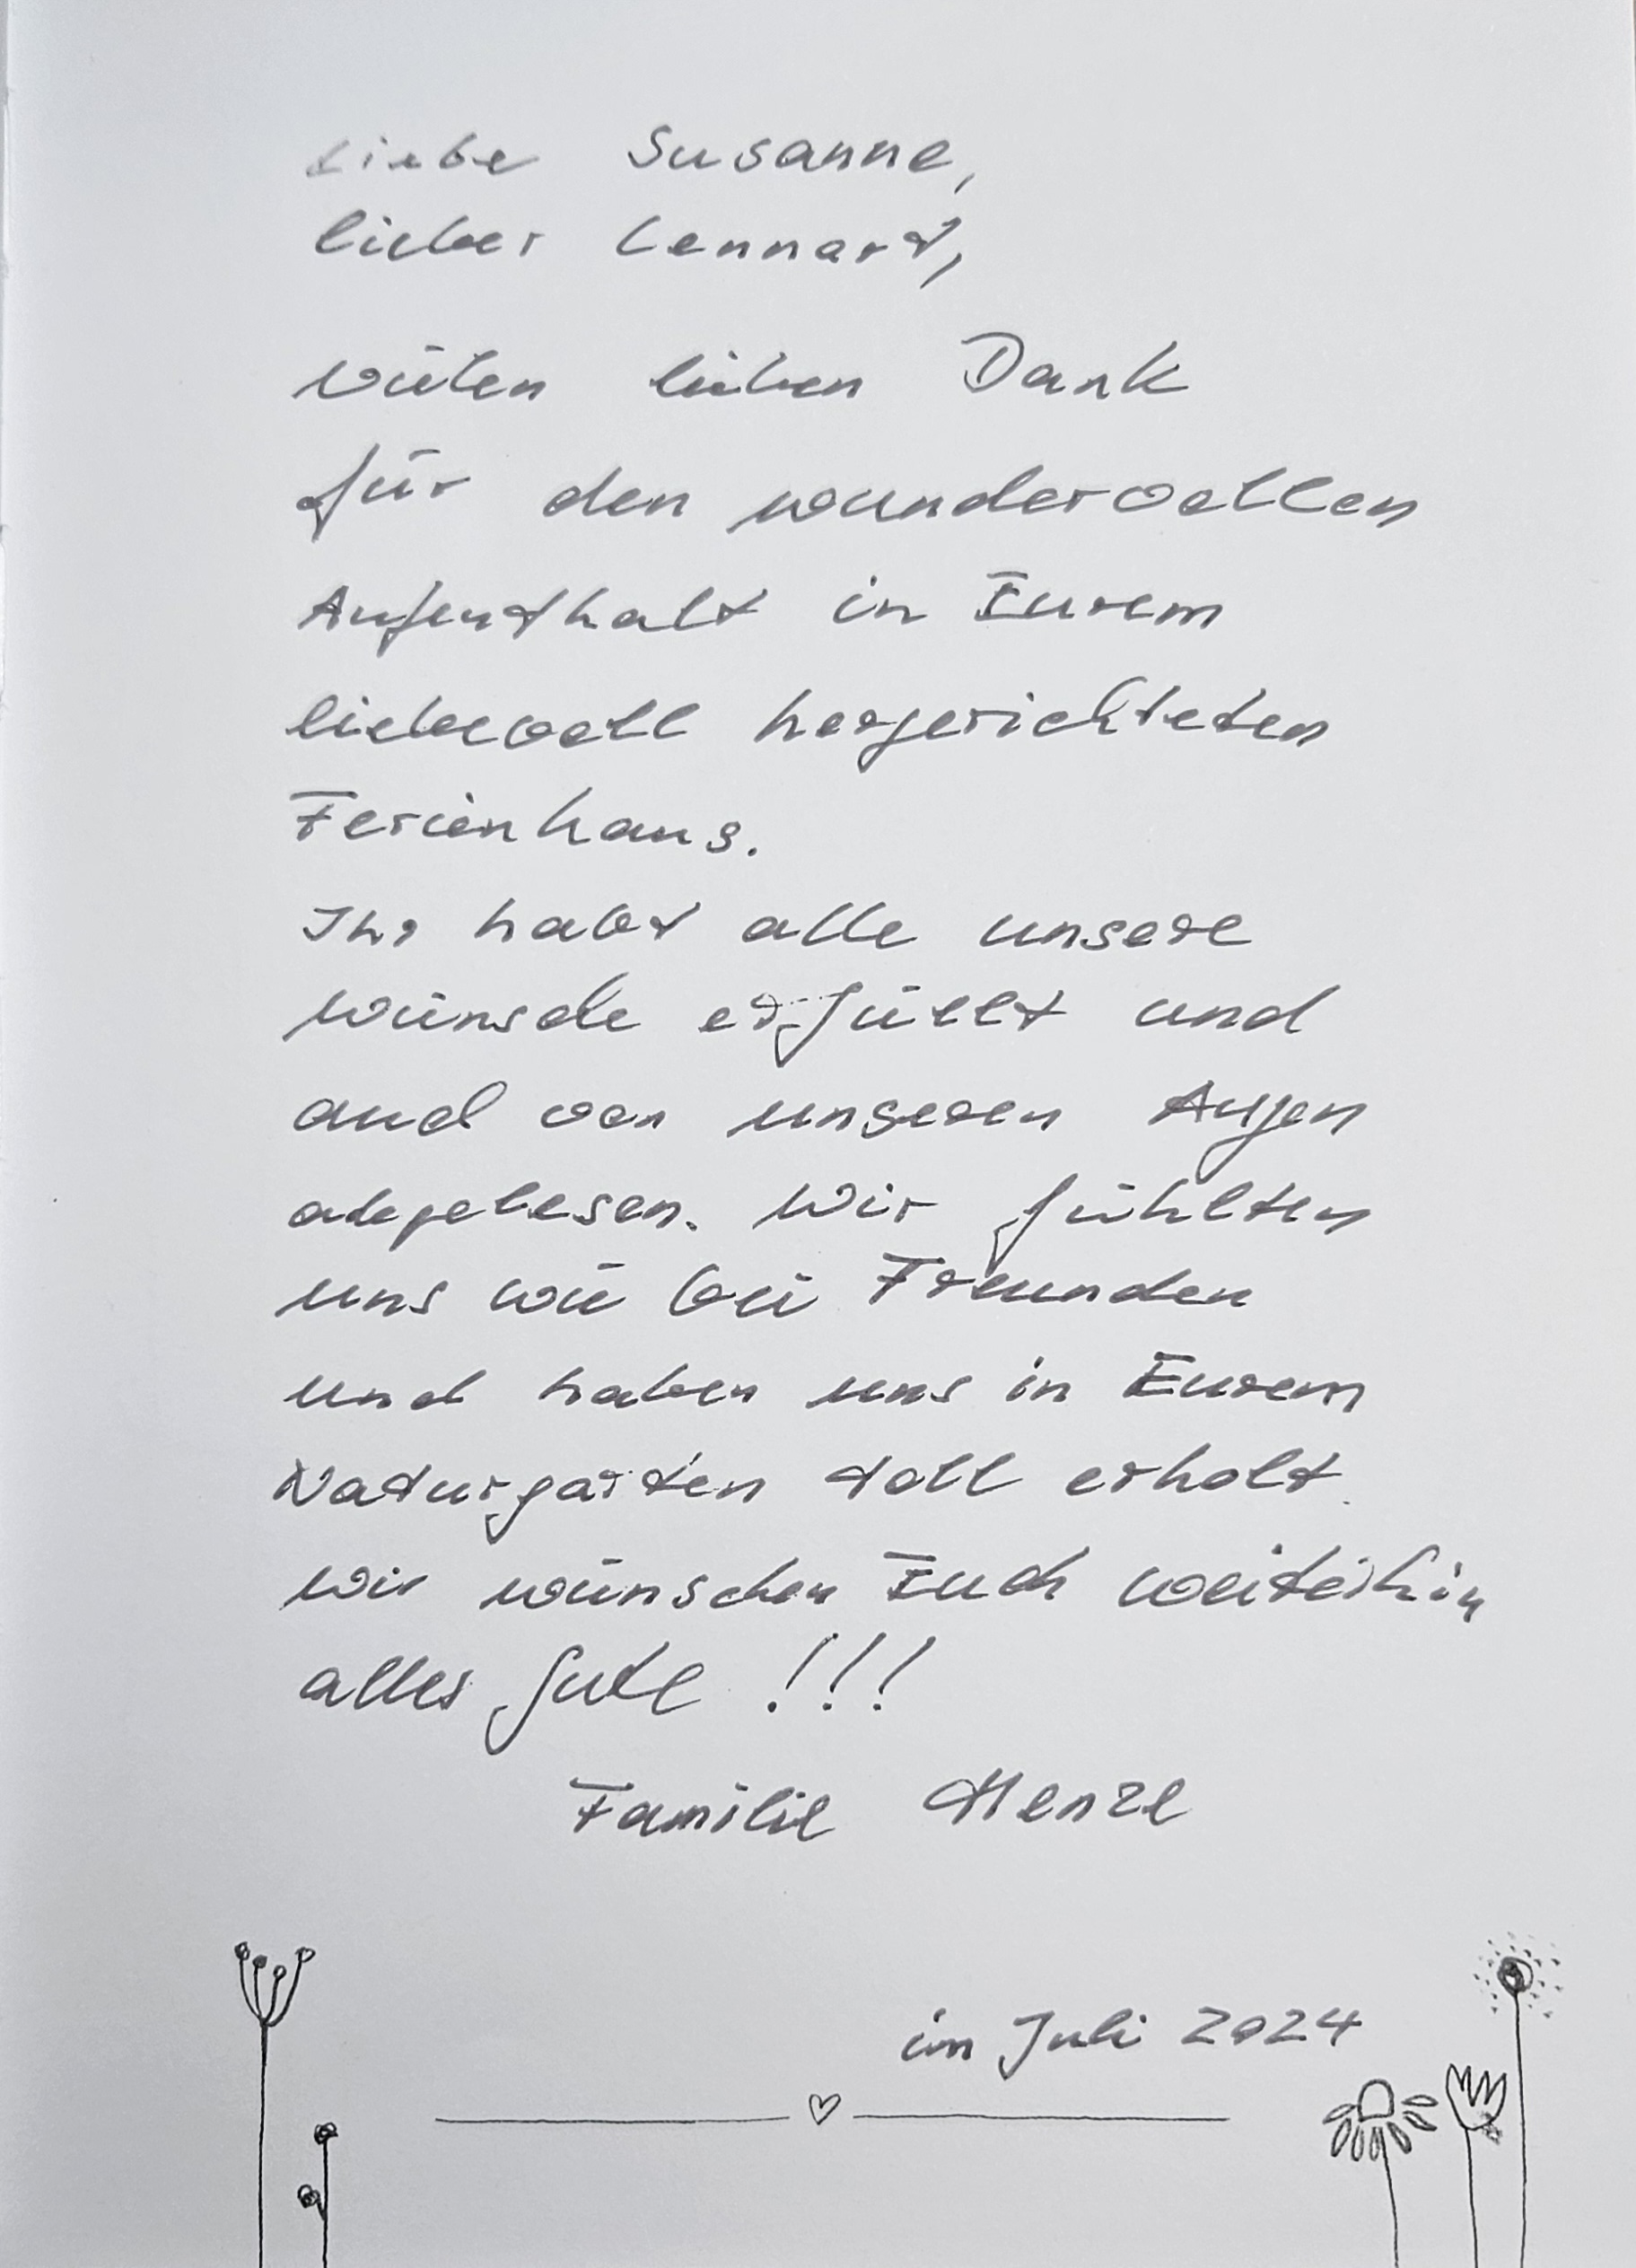 Liebe Susanne,
lieber Lennart,
vielen lieben Dank
für den wundervollen
Aufenthalt in Eurem
liebevoll hergerichteten
Ferienhaus.
Ihr habt alle unsere
Wünsche erfüllt und
auch von unseren Augen
abgelesen. Wir fühlten
uns wie bei Freunden
und haben uns in Eurem
Naturgarten toll erholt.
Wir wünschen Euch weiterhin
alles Gute !!!
Familie Henze
im Juli 2024